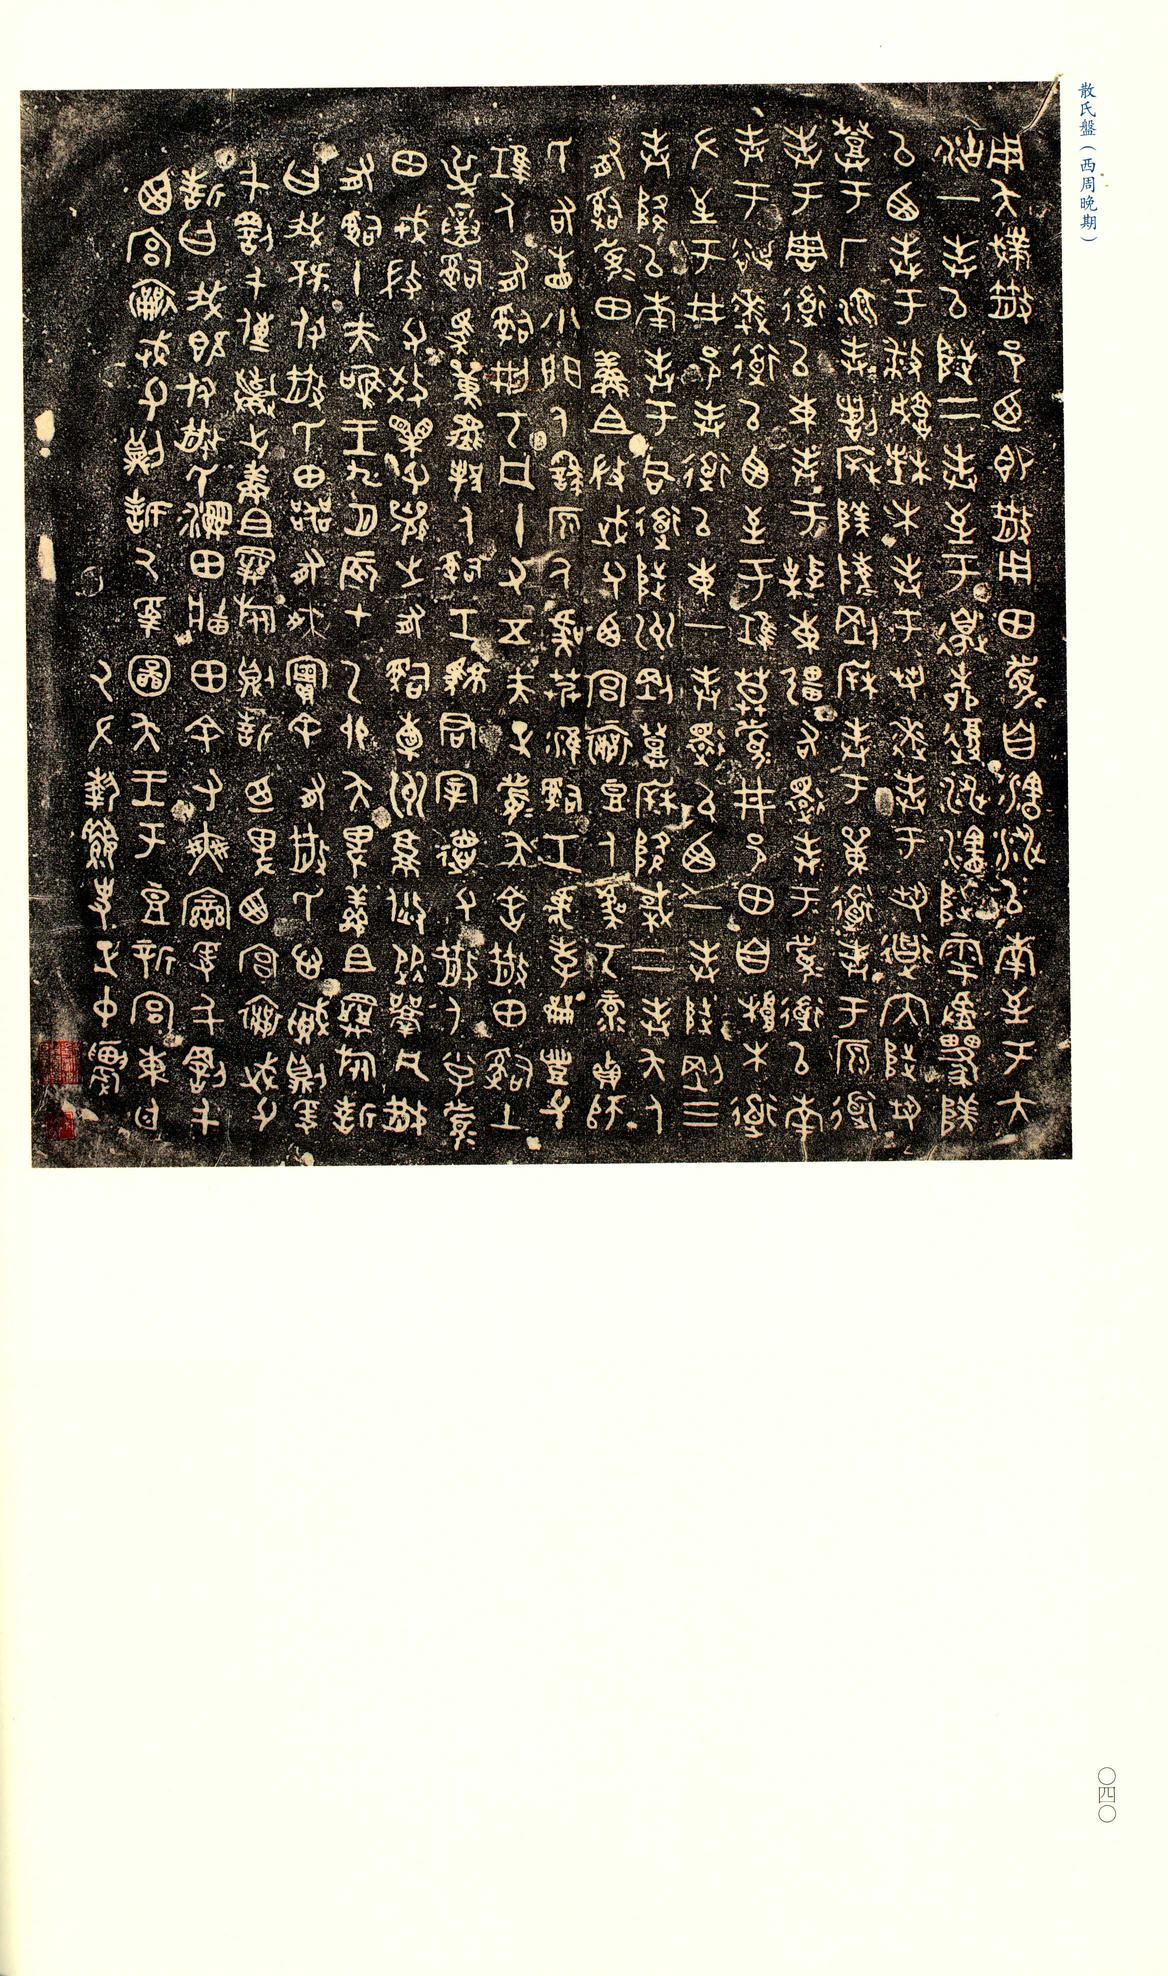 散氏盤（西周晚期）
用夨散邑乃即散用田眉自瀗涉以南至于大
沽一奉以陟二奉至于邊柳復涉瀗陟雩
以西奉于敝城楮木奉于芻逨奉于芻道內陟芻
登于厂湶奉諸陵剛奉于單道奉于原道
奉于周道以東奉于東疆右還奉于眉道以南
奉于逨道以西至于堆莫眉井邑田自根木道
左至于井邑奉道以東一奉還以西一奉陟剛三
奉降以南奉于同道陟州剛登降棫二奉夨人
有司眉田鮮且微武父西宮襄豆人虞丂彔貞師
氏右眚小門人繇原人虞艿淮司工虎孝龠豐父
堆人有司刑丂凡十又五夫正眉夨舍散田司土
屰司馬單邦人司工君宰德父散人小子眉
田戎微父效父襄之有司橐州焂從凡散
有司十夫唯王九月辰才乙卯夨俾鮮且旅誓
曰我既付散氏田器有爽實余有散氏心賊則爰
千罰千傳棄之鮮且旅則誓乃俾西宮襄武父
誓曰我既付散氏濕田田余有爽變爰千罰千
西宮襄武父則誓厥受圖夨王于豆新宮東廷
厥左執史正中農
〇四〇